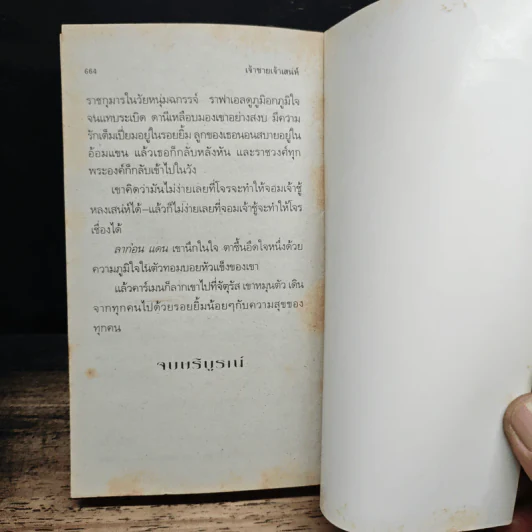 664 เจ้าชายเจ้าเสน่ห์
ราชกุมารในวัยหนุ่มฉกรรจ์ ราฟาเอลดูภูมิอกภูมิใจ
จนแทบระเบิด ดานีเหลือบมองเขาอย่างสงบ มีความ
รักเต็มเปี่ยมอยู่ในรอยยิ้ม ลูกของเธอนอนสบายอยู่ใน
อ้อมแขน แล้วเธอก็กลับหลังหัน และราชวงศ์ทุก
พระองค์ก็กลับเข้าไปในวัง
เขาคิดว่ามันไม่ง่ายเลยที่โจรจะทำให้จอมเจ้าชู้
หลงเสน่ห์ได้–แล้วก็ไม่ง่ายเลยที่จอมเจ้าชู้จะทำให้โจร
เชื่องได้
ลาก่อน แดน เขานึกในใจ ตาชื้นอึดใจหนึ่งด้วย
ความภูมิใจในตัวทอมบอยหัวแข็งของเขา
แล้วคาร์เมนก็ลากเขาไปที่จัตุรัส เขาหมุนตัว เดิน
จากทุกคนไปด้วยรอยยิ้มน้อยๆกับความสุขของ
ทุกคน
จบบริบูรณ์